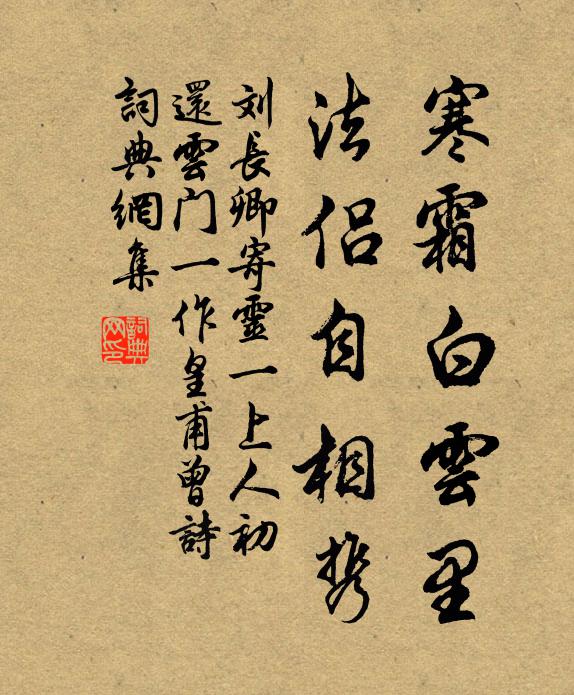 寒霜白雲里
法侣自相携
刘長卿寄靈一上人初
還雲门一作皇甫曾詩
詞典網集
詞典网印